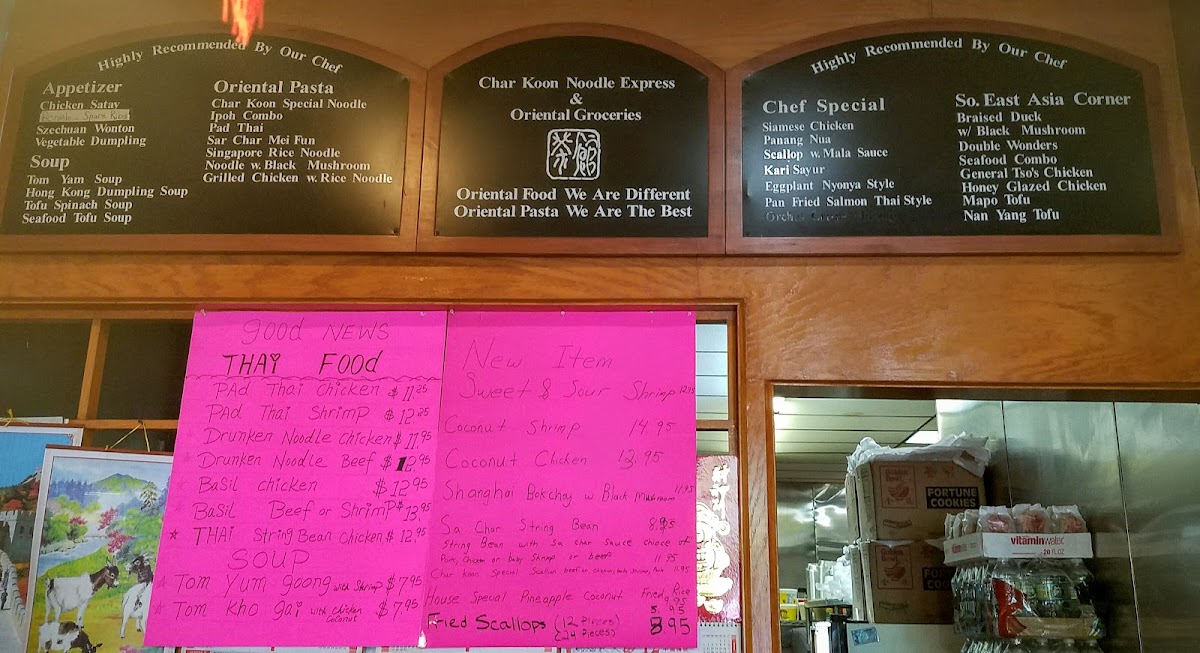 Highly Recommended By Our Chef
Appetizer
Chicken Satay
Szechuan Wonton
Vegetable Dumpling
Soup
Tom Yam Soup
Hong Kong Dumpling Soup
Tofu Spinach Soup
Seafood Tofu Soup
Oriental Pasta
Char Koon Special Noodle
Ipoh Combo
Pad Thai
Sar Char Mei Fun
Singapore Rice Noodle
Noodle w. Black Mushroom
Grilled Chicken w. Rice Noodle
Char Koon Noodle Express
&
Oriental Groceries
Oriental Food We Are Different
Oriental Pasta We Are The Best
Highly Recommended By Our Chef
Chef Special
Siamese Chicken
Panang Nua
Scallop w. Mala Sauce
Kari Sayur
Eggplant Nyonya Style
Pan Fried Salmon Thai Style
So. East Asia Corner
Braised Duck
w/ Black Mushroom
Double Wonders
Seafood Combo
General Tso's Chicken
Honey Glazed Chicken
Mapo Tofu
Nan Yang Tofu
good NEWS
THAi FOOd
PAd Thai Chicken $11.25
PAd Thai ShrimP $12.25
Drunken Noodle chicken $11.95
Drunken Noodle Beef $12.95
BaSil chicken $12.95
BaSiL Beef or ShrimP $13.95
THAi String Bean Chicken $12.95
SOUP
Tom Yum goong with Shrimp $7.95
Tom Kho gai with Chicken Coconut $7.95
New Item
Sweet & Sour Shrimp 12.95
Coconut Shrimp 14.95
Coconut Chicken 13.95
Shanghai Bokchoy w Black Mushroom 11.95
Sa Char String Bean 8.95
String Bean with Sa Char Sauce Choice of
Pork, Chicken or Baby Shrimp or beef 11.95
Char Koon Special Scallion beef or Chicken, baby Shrimp, Pork 11.95
House Special Pineapple Coconut Fried Rice
9.95
Fried Scallops (12 Pieces) 5.95
(24 Pieces) 8.95
Golden Bowl
FORTUNE
COOKIES
Golden Bowl
FORTUNE
COOKIES
vitaminwater
20 FL OZ